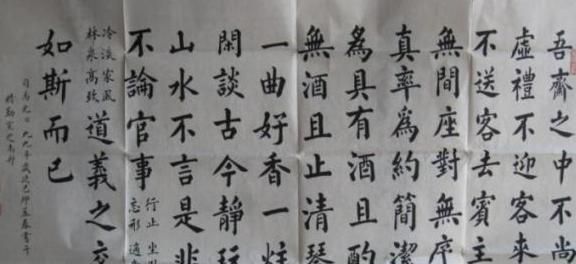 吾齋之中不尚
虛禮不迎客來
不送客去賓主
無間座對無序
真率爲約簡潔
爲具有酒且酌
無酒且止清琴
一曲好香一炷
閑談古今靜玩
山水不言是非
不論官事行止坐
忘形適
冷淡家風
林泉高致道義之交
如斯而已
司馬光 一九九九年歲次己卯孟春書于